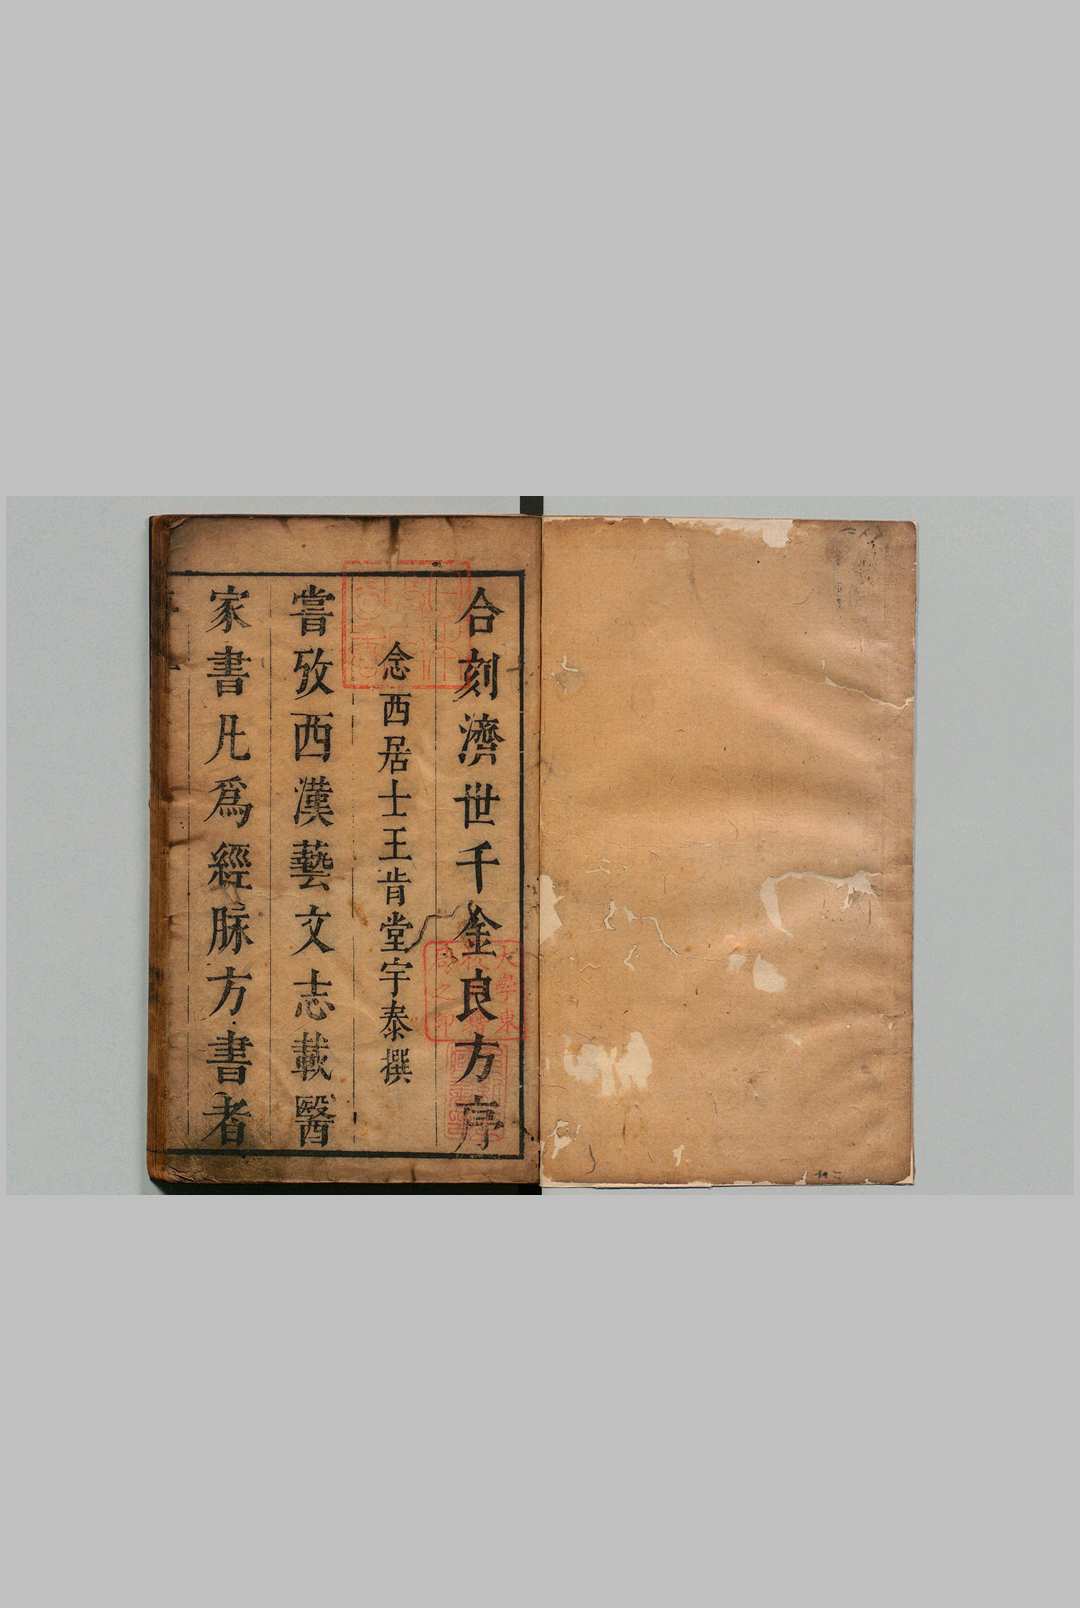 合刻濟世千金良方序
念西居士王肯堂宇泰撰
嘗攷西漢藝文志載醫
家書凡爲經脉方書者